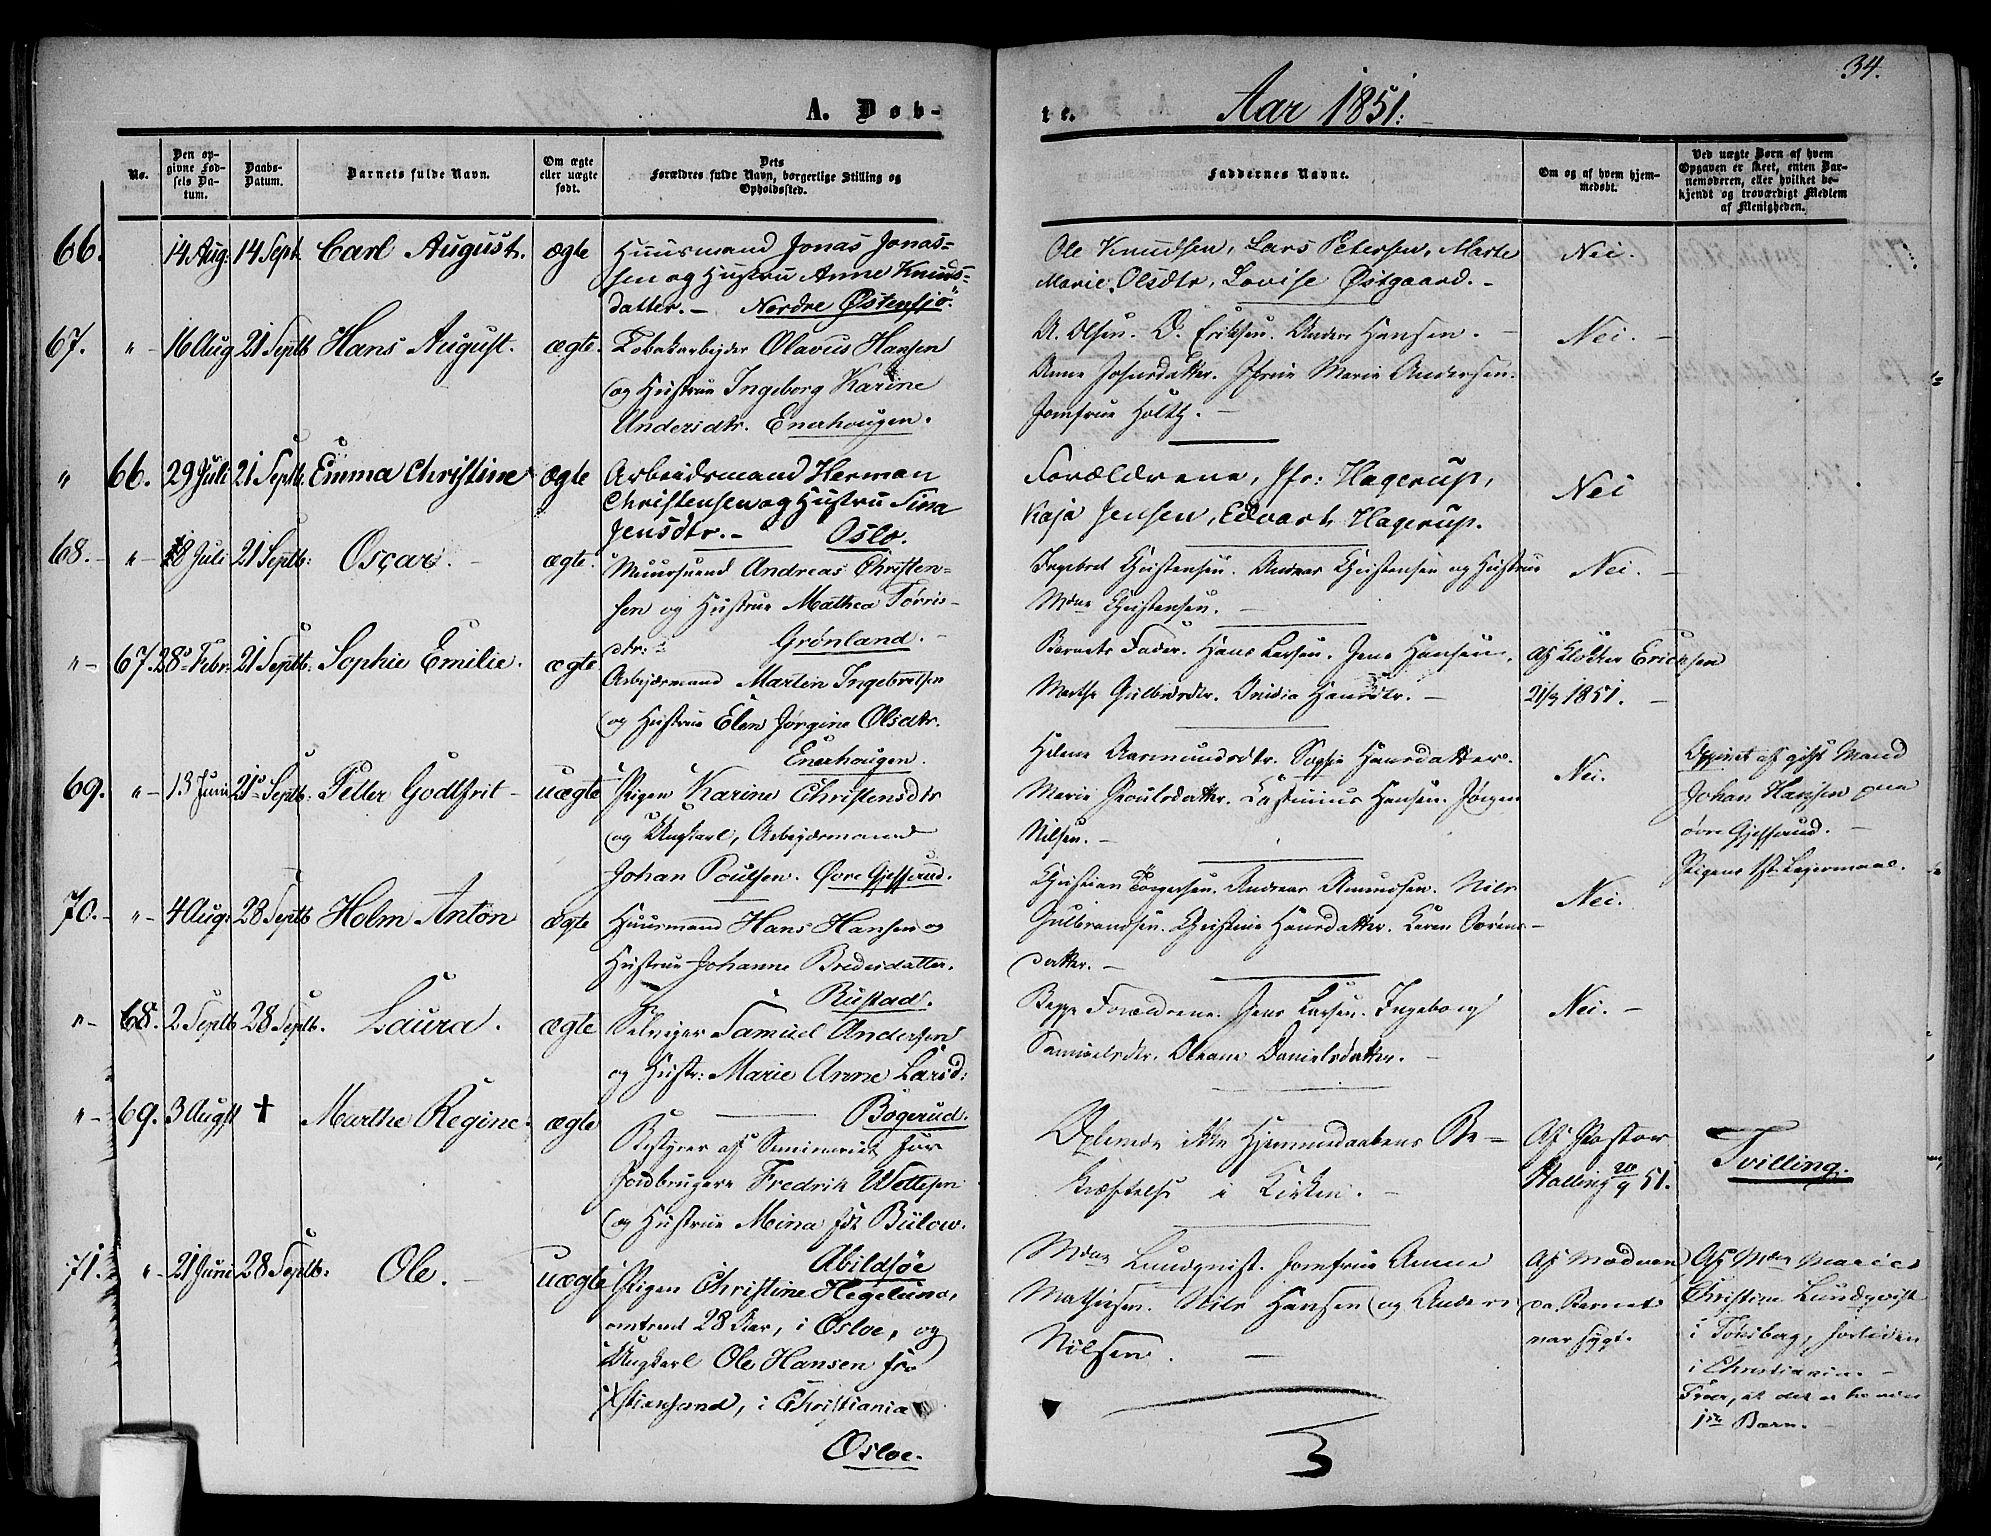 34.
A. Døb-
te.
Aar 1851.
No.
Den op-
givne Fød-
sels Da-
tum.
Daabs-
Datum.
Barnets fulde Navn.
Om ægte
eller uægte
født.
Dets
Forældres fulde Navn, borgerlige Stilling og
Opholdssted.
Faddernes Navne.
Om og af hvem hjem-
medøbt.
Ved uægte Børn af hvem
Opgaven er skeet, enten Bar-
nemoderen, eller hvilket be-
kjendt og troværdigt Medlem
af Menigheden.
66. 14 Aug: 14 Sept. Carl August. ægte
Huusmand Jonas Jonas-
sen og Hustru Anne Knuds-
datter. - Nordre Østensjø.
Ole Knudsen, Lars Petersen, Marte
Marie Olsdtr, Lovise Østgaard. -
Nei.
67. " 16 Aug 21 Septb Hans August. ægte.
Tobakarbejder Olavus Hansen
og Hustrue Ingeborg Karine
Andersdtr. Enerhougen.
A. Olsen. O. Eriksen. Anders Hansen. -
Anne Johnsdatter. Jfrue Marie Andersen.
Jomfrue Holth. -
Nei. -
" 66. 29 Juli 21 Septb. Emma Christine ægte
Arbeidsmand Herman
Christensen og Hustru Sina
Jensdtr. - Oslo.
Forældrene, Jfr: Hagerup,
Kaja Jensen, Edvart Hagerup.
Nei
68. " 18 Juli 21 Septb: Oscar. - ægte.
Muursvend Andreas Christen-
sen og Hustrue Mathea Tørris-
dtr. Grønland. -
Ingebret Christensen. Andreas Christensen og Hustrue
Mdme Christensen. -
Nei. -
" 67. 28 Febr. 21 Septb. Sophie Emilie. ægte
Arbejdsmand Martin Ingebretsen
og Hustrue Elen Jørgine Olsdtr.
Enerhougen.
Barnets Fader. Hans Larsen. Jens Hansen.
Marthe Gulbrdsdtr. Hansdtr. -
Af Klokker Ericksen
21/9 1851. -
69. " 13 Juni 21 Septb: Petter Godtfrit - uægte
Pigen Karine Christensdtr
og Ungkarl, Arbejdsmand
Johan Poulsen. Øvre Gjefsrud.
Helene Aasmundsdtr. Sophie Hansdatter.
Marie Poulsdatter. Hansen. Jørgen
Nilsen. -
Nei.
Opgivet af gift Mand
Johan Hansen paa
øvre Gjefsrud. -
Pigens 1ste Leiermaal.
70. " 4 Aug: 28 Septb Holm Anton ægte
Huusmand Hans Hansen og
Hustrue Johanne Bredesdatter.
Rustad.
Christian Torgersen. Andreas Amundsen. Nils
Gulbrandsen. Christine Hansdatter. Karen Sørens-
datter. -
Nei.
" 68. 2 Septb 28 Septb. Laura. ægte
Selveier Samuel Andersen
og Hustr: Marie Anne Larsd:
Bøgerud.
Begge Forældrene. Jens Larsen. Ingeborg
Samuelsdtr. Oleane Danielsdatter. -
Nei. -
" 69. 3 Augst † Marthe Regine. ægte
Bestyrer af Seminariet for
Jordbrugere Fredrik Wettesen
og Hustrue Mina fdt Bülow.
Abildsøe
Oplevede ikke Hjemmedaabens Be-
kræftelse i Kirken. -
Af Pastor
Halling 20/9 51.
Tvilling.
71. " 21 Juni 28 Septb: Ole. - uægte
Pigen Christine Hegelund,
omtrent 28 Aar, i Osloe, og
Ungkarl Ole Hansen fra
Xstiansand, i Christiania
Osloe.
Mdme Lundqvist. Jomfrue Anne
Mathisen. Nils Hansen og Anders
Nilsen. -
Af Mødren,
da Barnet
var sygt.
Af Mdme Marie
Christine Lundqvist
i Tønsberg, forleden
i Christiania. -
Troer, at det er hendes
1ste Barn. -
3